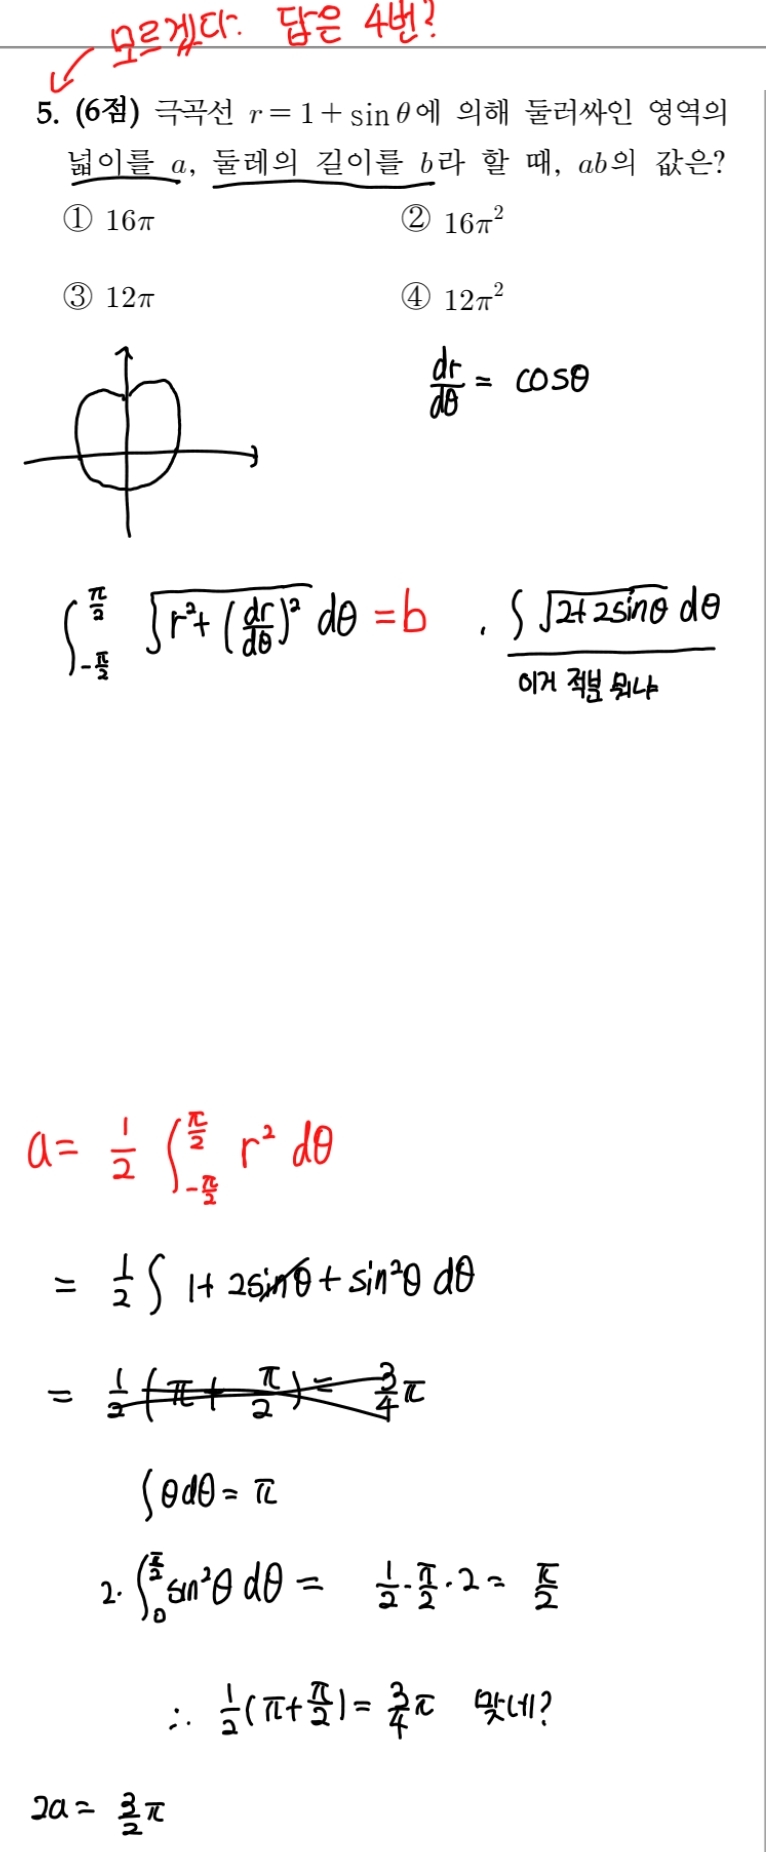 모르겠다. 답은 4번?
5. (6점) 극곡선 r = 1 + sin θ에 의해 둘러싸인 영역의
넓이를 a, 둘레의 길이를 b라 할 때, ab의 값은?
① 16π ② 16π²
③ 12π ④ 12π²
dr/dθ = cosθ
∫_{-π/2}^{π/2} √(r²+(dr/dθ)²) dθ = b . ∫√(2+2sinθ) dθ
이거 적분 뭐냐
a = 1/2 ∫_{-π/2}^{π/2} r² dθ
= 1/2 ∫ 1+2sinθ+sin²θ dθ
= 1/2 (π + π/2) = 3/4 π
∫θdθ = π
2·∫_0^{π/2} sin²θ dθ = 1/2·π/2·2 = π/2
∴ 1/2(π+π/2) = 3/4 π 맞네?
2a = 3/2 π